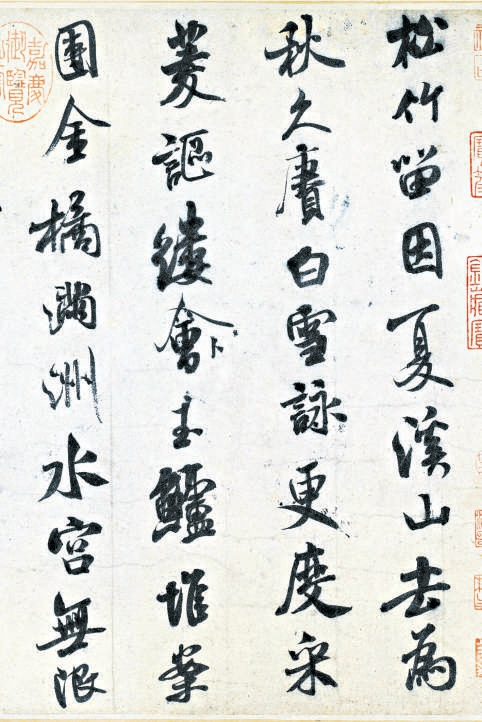 松竹留因夏溪山去為
秋久賡白雪詠更度采
菱謳縷會卜玉鱸堆案
團金橘滿洲水宮無限
嘉慶
御覽